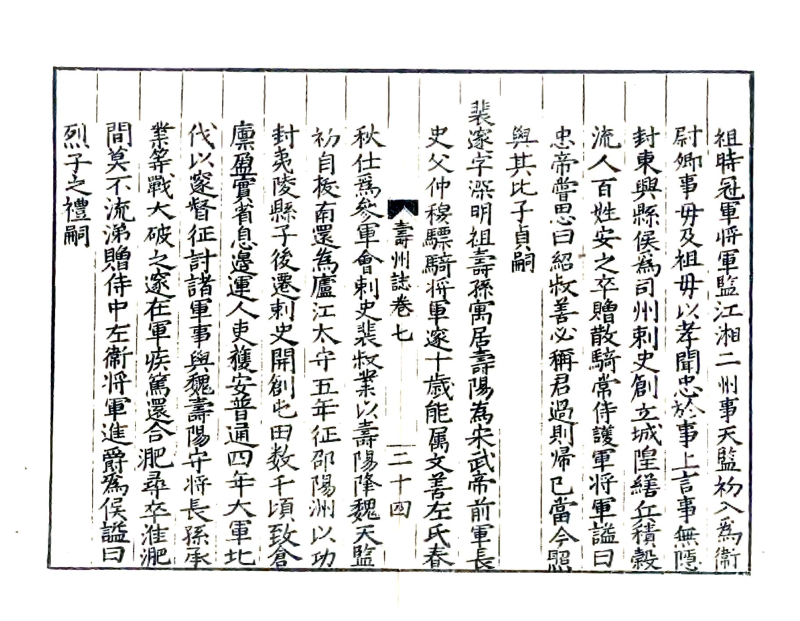 祖時冠軍將軍監江湘二州事天監初入為衛
尉卿事毋及祖毋以孝聞忠於事上言事無隱
封東興縣侯為司州刺史創立城隍繕兵積穀
流人百姓安之卒贈散騎常侍護軍將軍諡曰
忠帝嘗思曰紹叔善必稱君過則帰已當今罕
與其比子貞嗣
裴邃字深明祖壽孫寓居壽陽為宋武帝前軍長
史父仲穆驃騎將軍邃十歲能属文善左氏春
壽州誌卷七
二十四
秋仕為參軍會刺史裴叔業以壽陽降魏天監
初自拔南還為廬江太守五年征邵陽洲以功
封夷陵縣子後遷刺史開創屯田数千頃致倉
廪盈實省息邊運人吏獲安普通四年大軍北
伐以邃督征討諸軍事與魏壽陽守將長孫承
業等戰大破之邃在軍疾篤還合淝尋卒淮淝
間莫不流涕贈侍中左衛將軍進爵為侯諡曰
烈子之禮嗣